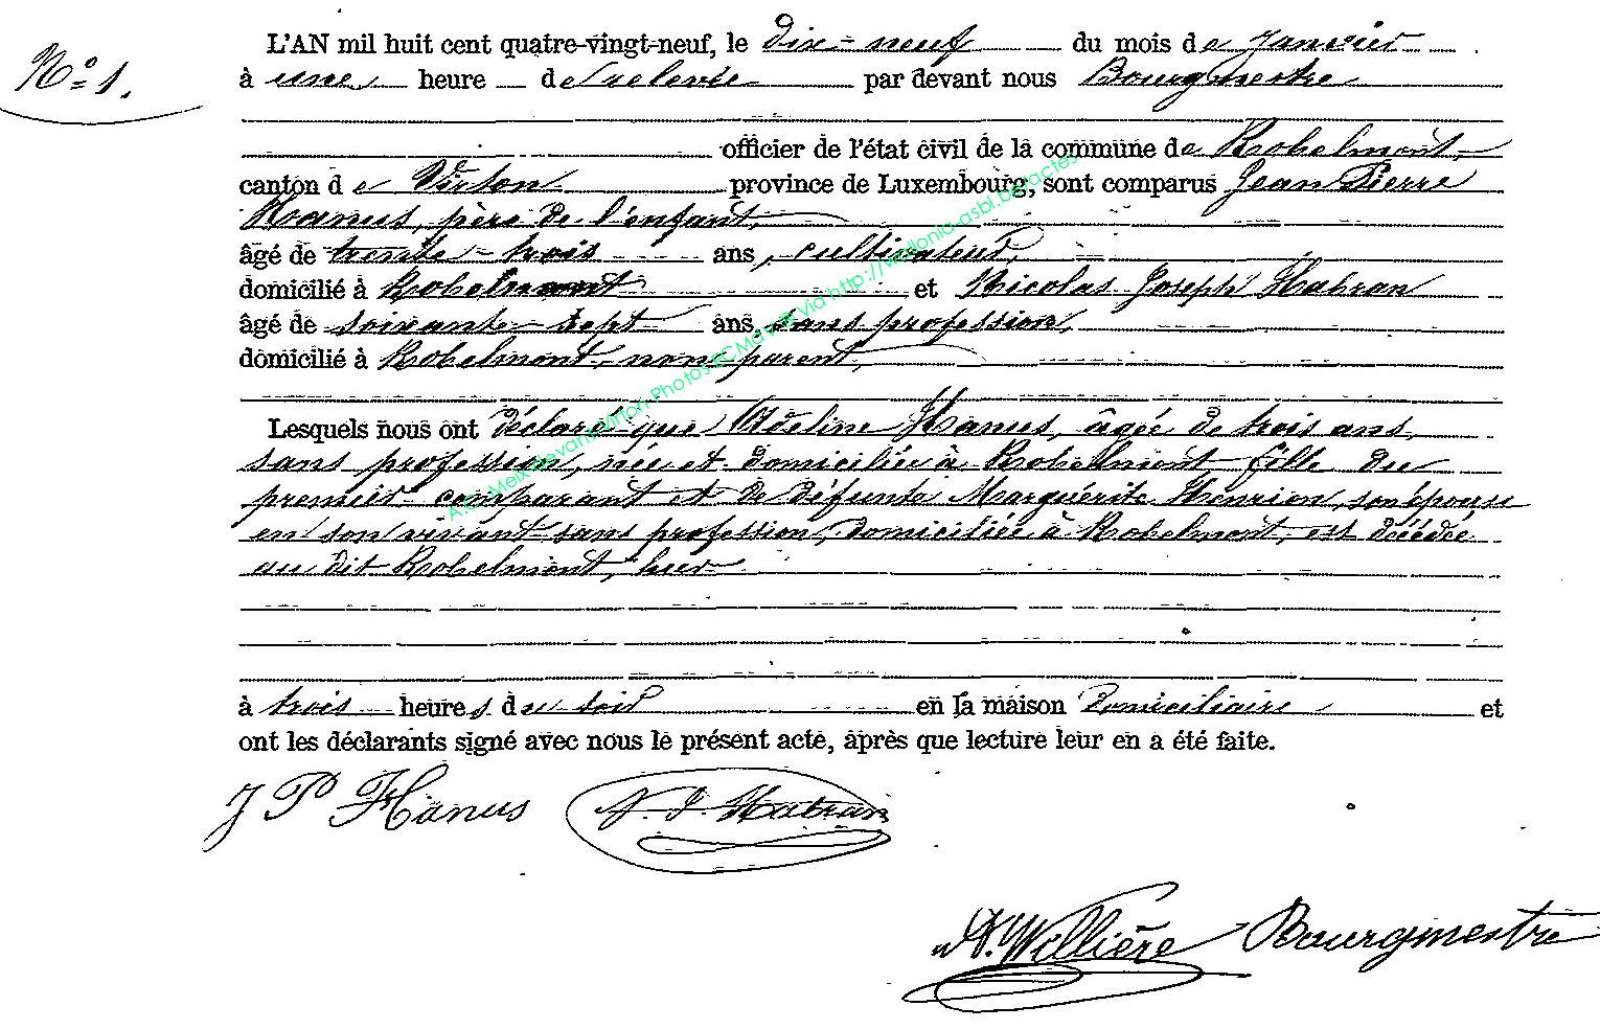 N° 1.
L'AN mil huit cent quatre-vingt-neuf, le dix-neuf du mois de Janvier
à une heure de relevée par devant nous Bourgmestre
officier de l'état civil de la commune de Robelmont,
canton de Virton province de Luxembourg, sont comparus Jean Pierre
Hanus, père de l'enfant,
âgé de trente-trois ans, cultivateur,
domicilié à Robelmont et Nicolas Joseph Habran
âgé de soixante-sept ans, sans profession,
domicilié à Robelmont, non parent,
Lesquels nous ont déclaré que Adeline Hanus, âgée de trois ans,
sans profession, née et domiciliée à Robelmont fille du
premier comparant et de défunte Marguérite Henrion, son épouse
en son vivant sans profession, domiciliée à Robelmont, est décédée
au dit Robelmont, hier
à trois heures du soir en la maison Domiciliaire et
ont les déclarants signé avec nous le présent acte, après que lecture leur en a été faite.
J P Hanus N. J. Habran
Willière Bourgmestre